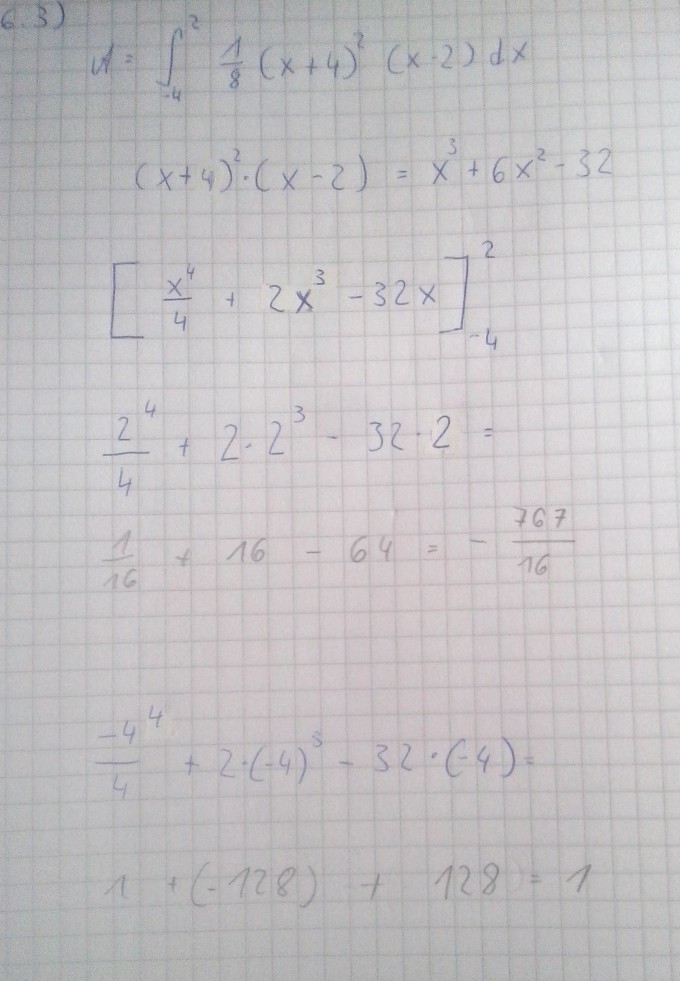 6.3)
A = ∫₋₄² 1/8 (x+4)² (x-2) dx
(x+4)²·(x-2) = x³ + 6x² - 32
[x⁴/4 + 2x³ - 32x]₋₄²
2⁴/4 + 2·2³ - 32·2 =
1/16 + 16 - 64 = - 767/16
-4⁴/4 + 2·(-4)³ - 32·(-4) =
1 + (-128) + 128 = 1